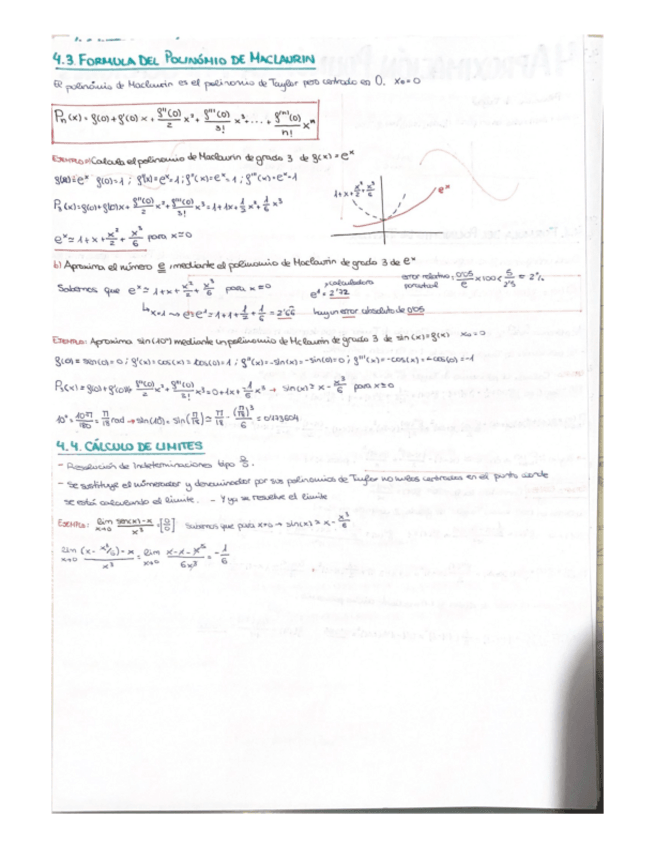 4.3 FORMULA DEL POLINÓMIO DE MACLAURIN
El polinómio de Maclaurin es el polinomio de Taylor pero centrado en 0. x₀=0
Pn(x) = f(0)+f'(0)x + f''(0)/2 x² + f'''(0)/3! x³+...+ f⁽ⁿ⁾(0)/n! xⁿ
Calcula el polinomio de Maclaurin de grado 3 de f(x)=eˣ
f(x)=eˣ f(0)=1 ; f'(x)=eˣ=1 ; f''(x)=eˣ=1 ; f'''(x)=eˣ=1
1+x+x²/2+x³/6
eˣ
P₃(x)=f(0)+f'(0)x+ f''(0)/2 x²+ f'''(0)/3! x³=1+1x+ 1/2 x²+ 1/6 x³
eˣ≃1+x+ x²/2 + x³/6 para x≃0
b) Aproxima el número e, mediante el polinomio de Maclaurin de grado 3 de eˣ
Sabemos que eˣ≃1+x+ x²/2 + x³/6 para x≃0
calculadora
e¹=2'72
error relativo porcentual : 0'05/e x100< 5/2'5 = 2%
x=1 → e≃e¹=1+1+ 1/2 + 1/6 = 2'66 hay un error absoluto de 0'05
EJEMPLO: Aproxima sin(10°) mediante un polinomio de Mclaurin de grado 3 de sin(x)=f(x) x₀=0
f(0)=sen(0)=0 ; f'(x)=cos(x)=cos(0)=1 ; f''(x)=-sin(x)=-sin(0)=0 ; f'''(x)=-cos(x)=-cos(0)=-1
P₃(x)=f(0)+f'(0)x+ f''(0)/2 x²+ f'''(0)/3! x³=0+1x+ -1/6 x³ → sin(x)≃x- x³/6 para x≃0
10°= 10π/180 = π/18 rad → sin(10)=sin(π/18)≃ π/18 - (π/18)³/6 =
4.4. CÁLCULO DE LIMITES
- Resolución de Indeterminaciones tipo 0/0.
- Se sustituye el númerador y denominador por sus polinomios de Taylor no nulos centrados en el punto donde
se está calculando el límite. - Y ya se resuelve el límite
EJEMPLO: lim x→0 sen(x)-x/x³ = [0/0] Sabemos que para x≃0 → sin(x)≃x- x³/6
lim x→0 (x- x³/6)-x/x³ = lim x→0 x-x-x³/6x³ = -1/6